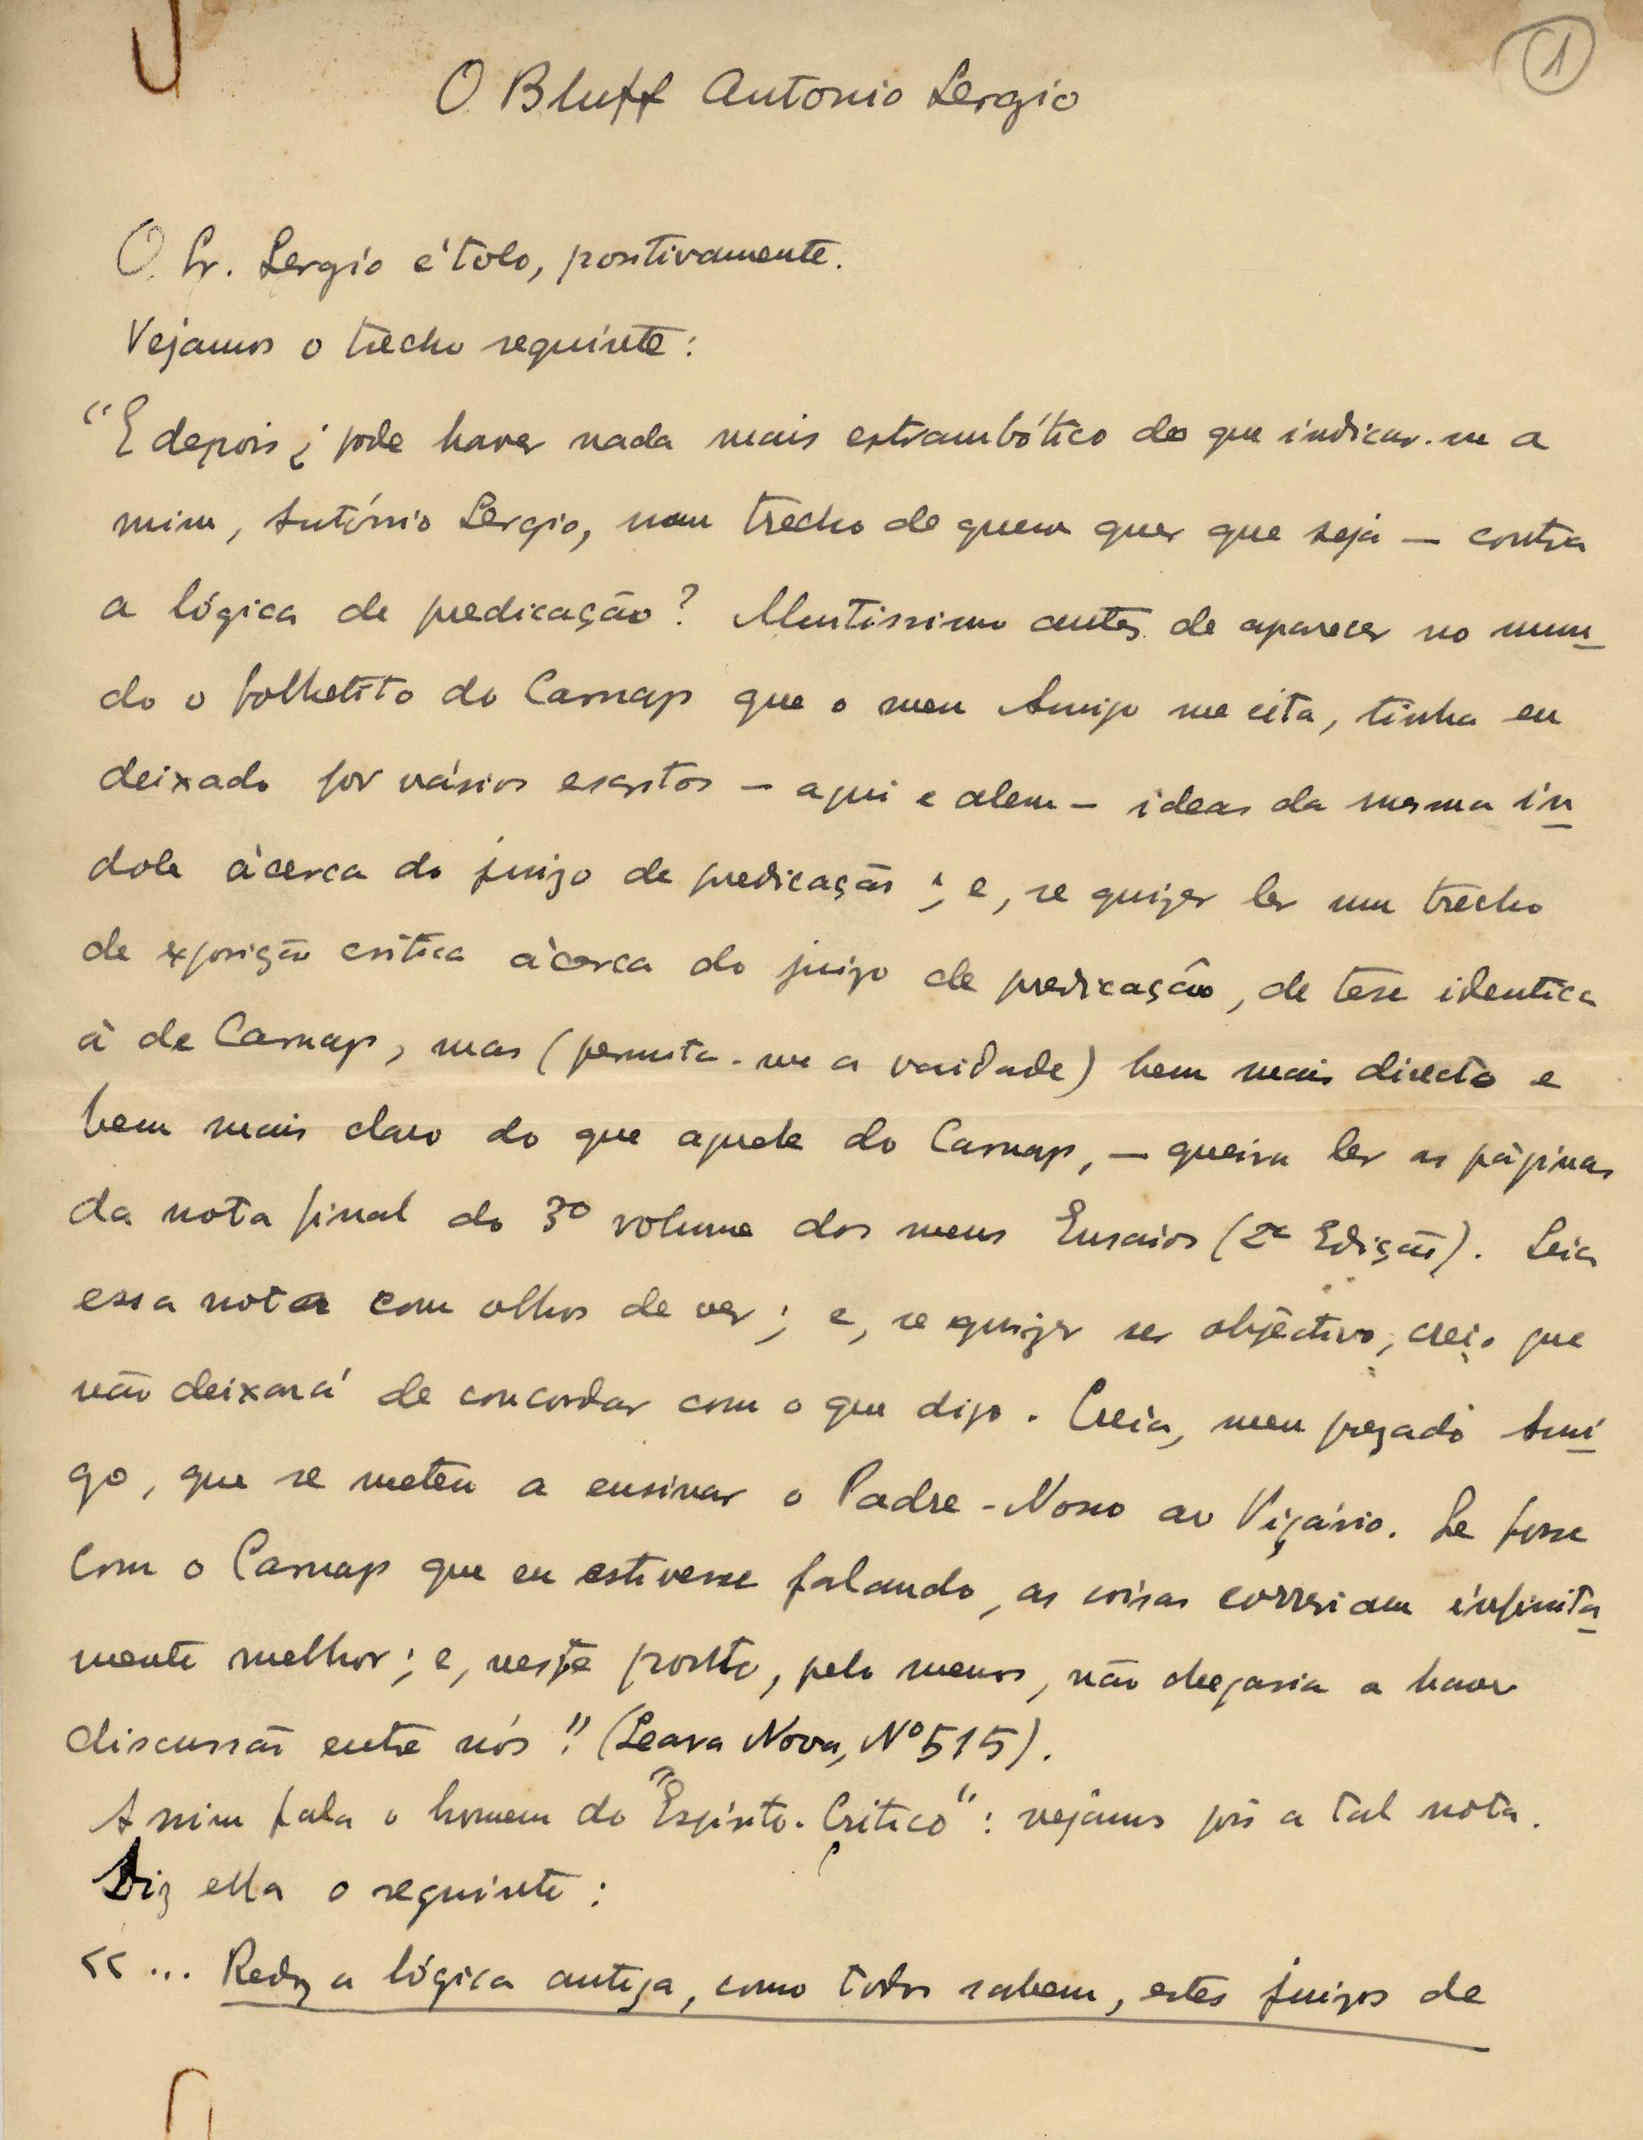 1
O Bluff Antonio Sergio
O Sr. Sergio é tolo, positivamente.
Vejamos o trecho seguinte:
"E depois ¿ pode haver nada mais extrambótico do que indicar-me a
mim, António Sergio, num trecho de quem quer que seja — contra
a lógica de predicação? Muitissimo antes de aparecer no mun-
do o folhetito do Carnap que o meu Amigo me cita, tinha eu
deixado por vários escritos — aqui e alem — ideas da mesma in-
dole àcerca do juizo de predicação; e, se quizer ler um trecho
de exposição crítica àcerca do juizo de predicação, de tese identica
à de Carnap, mas (permita-me a vaidade) bem mais directo e
bem mais claro do que aquele do Carnap, — queira ler as páginas
da nota final do 3º volume dos meus Ensaios (2ª Edição). Leia
essa nota com olhos de ver; e, se quizer ser objectivo, creio que
não deixará de concordar com o que digo. Creia, meu prezado Ami-
go, que se meteu a ensinar o Padre-Nosso ao Vigário. Se fosse
com o Carnap que eu estivesse falando, as coisas correriam infinita-
mente melhor; e, neste ponto, pelo menos, não chegaria a haver
discussão entre nós!" (Seara Nova, Nº 515).
Assim fala o homem do "Espírito-Crítico": vejamos pois a tal nota.
Diz ella o seguinte:
<< ... Reduz a lógica antiga, como todos sabem, estes juizos de